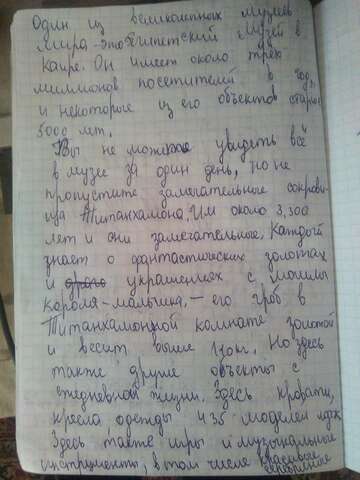 Один из великолепных музеев
мира - это Египетский музей в
Каире. Он имеет около трёх
миллионов посетителей в год,
и некоторые из его объектов старше
5000 лет.
Вы не можете увидеть всё
в музее за один день, но не
пропустите замечательные сокрови-
ща Титанхамона. Им около 3,300
лет и они замечательное. Каждый
знает о фантастических золотах
и украшениях с могилы
короля-мальчика, - его гроб в
Титанхамонной комнате золотой
и весит выше 110кг. Но здесь
также другие объекты с
ежедневной жизни. Здесь кровати,
кресла, одежды и 35 моделей лодк.
Здесь также игры и музыкальные
инструменты, в том числе красивые
серебряные